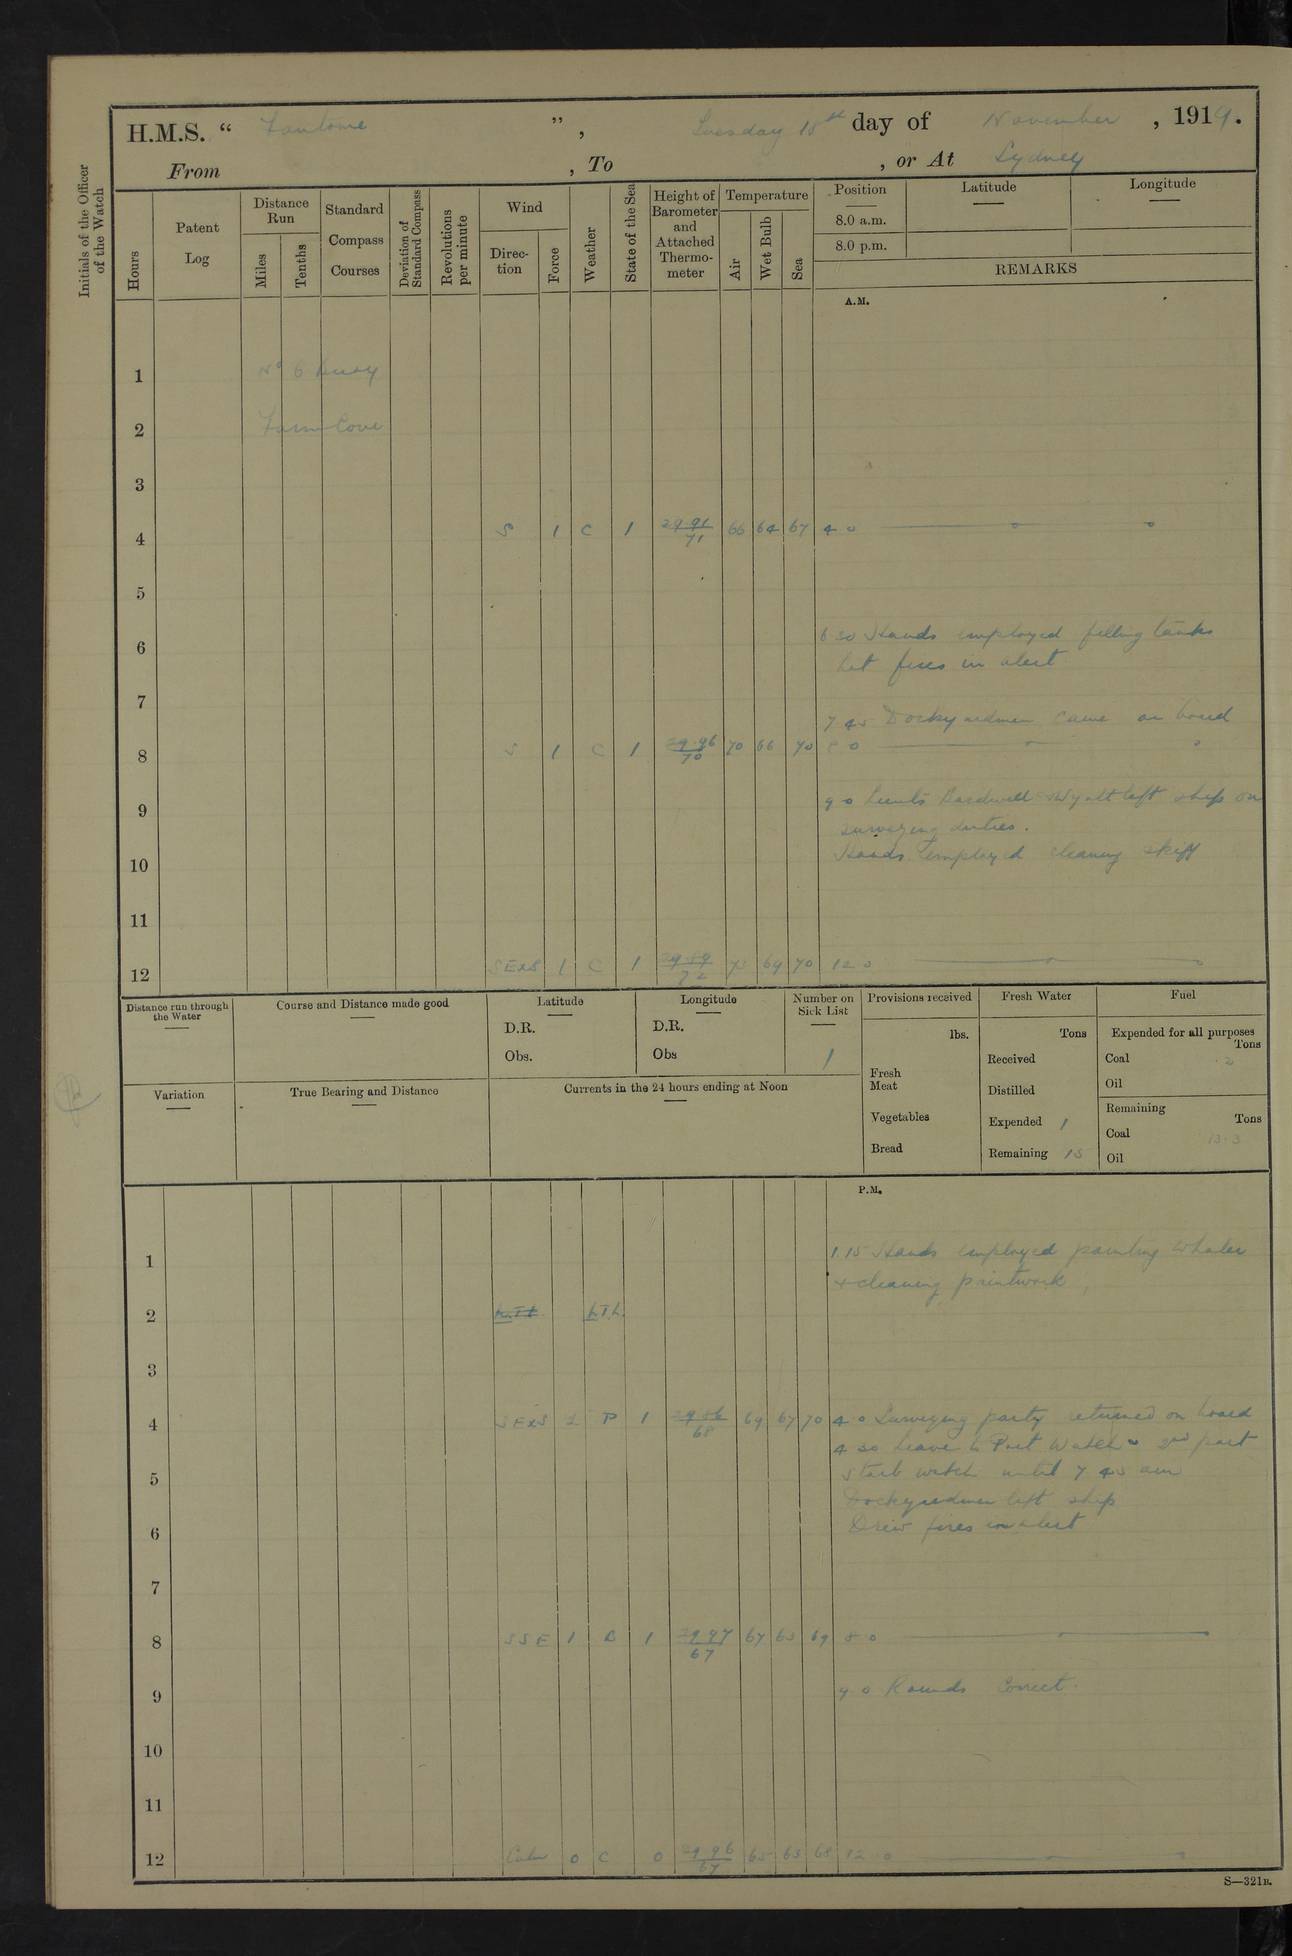 H.M.S. " Fantome ", Tuesday 18th day of November, 1919.
From , To , or At Sydney
Initials of the Officer of the Watch
Hours
Patent Log
Distance Run
Miles
Tenths
Standard Compass Courses
Deviation of Standard Compass
Revolutions per minute
Wind
Direction
Force
Weather
State of the Sea
Height of Barometer and Attached Thermometer
Temperature
Air
Wet Bulb
Sea
Position
8.0 a.m.
8.0 p.m.
Latitude
Longitude
REMARKS
A.M.
1 No 6 buoy
2 Farm Cove
3
4 S 1 C 1 29.91/71 66 64 67 4 0
5
6 6 30 Hands employed filling tanks
lit fires in alert
7
7 45 Dockyardmen came on board
8 S 1 C 1 29.96/70 70 66 70 8 0
9 9 0 Lieuts Bardwell & Wyatt left ship on
surveying duties.
10 Hands employed cleaning skiff
11
12 SExS 1 C 1 69 70 12 0
Distance run through the Water
Course and Distance made good
Latitude
D.R.
Obs.
Longitude
D.R.
Obs
Number on Sick List
1
Provisions received
lbs.
Fresh Meat
Vegetables
Bread
Fresh Water
Tons
Received
Distilled
Expended 1
Remaining 15
Fuel
Expended for all purposes
Tons
Coal ·2
Oil
Remaining
Tons
Coal 13·3
Oil
Variation
True Bearing and Distance
Currents in the 24 hours ending at Noon
P.M.
1 1.15 Hands employed painting whaler
& cleaning paintwork
2
3
4 SExS 1 69 67 70 4 0 Surveying party returned on board
4 30 Leave to Port Watch & 2nd part
5 Starb watch until 7 45 am
Dockyardmen left ship
6 Drew fires in alert
7
8 SSE 1 1 29.97/67 67 65 69 8 0
9 9 0 Rounds Correct.
10
11
12 Calm 0 C 0 29.96/67 65 63 68 12 0
S—321B.